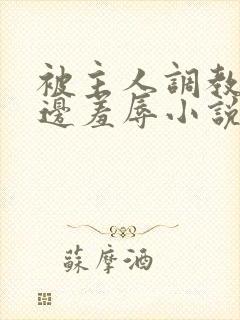 被主人調教
邊羞辱小說
蘇摩酒